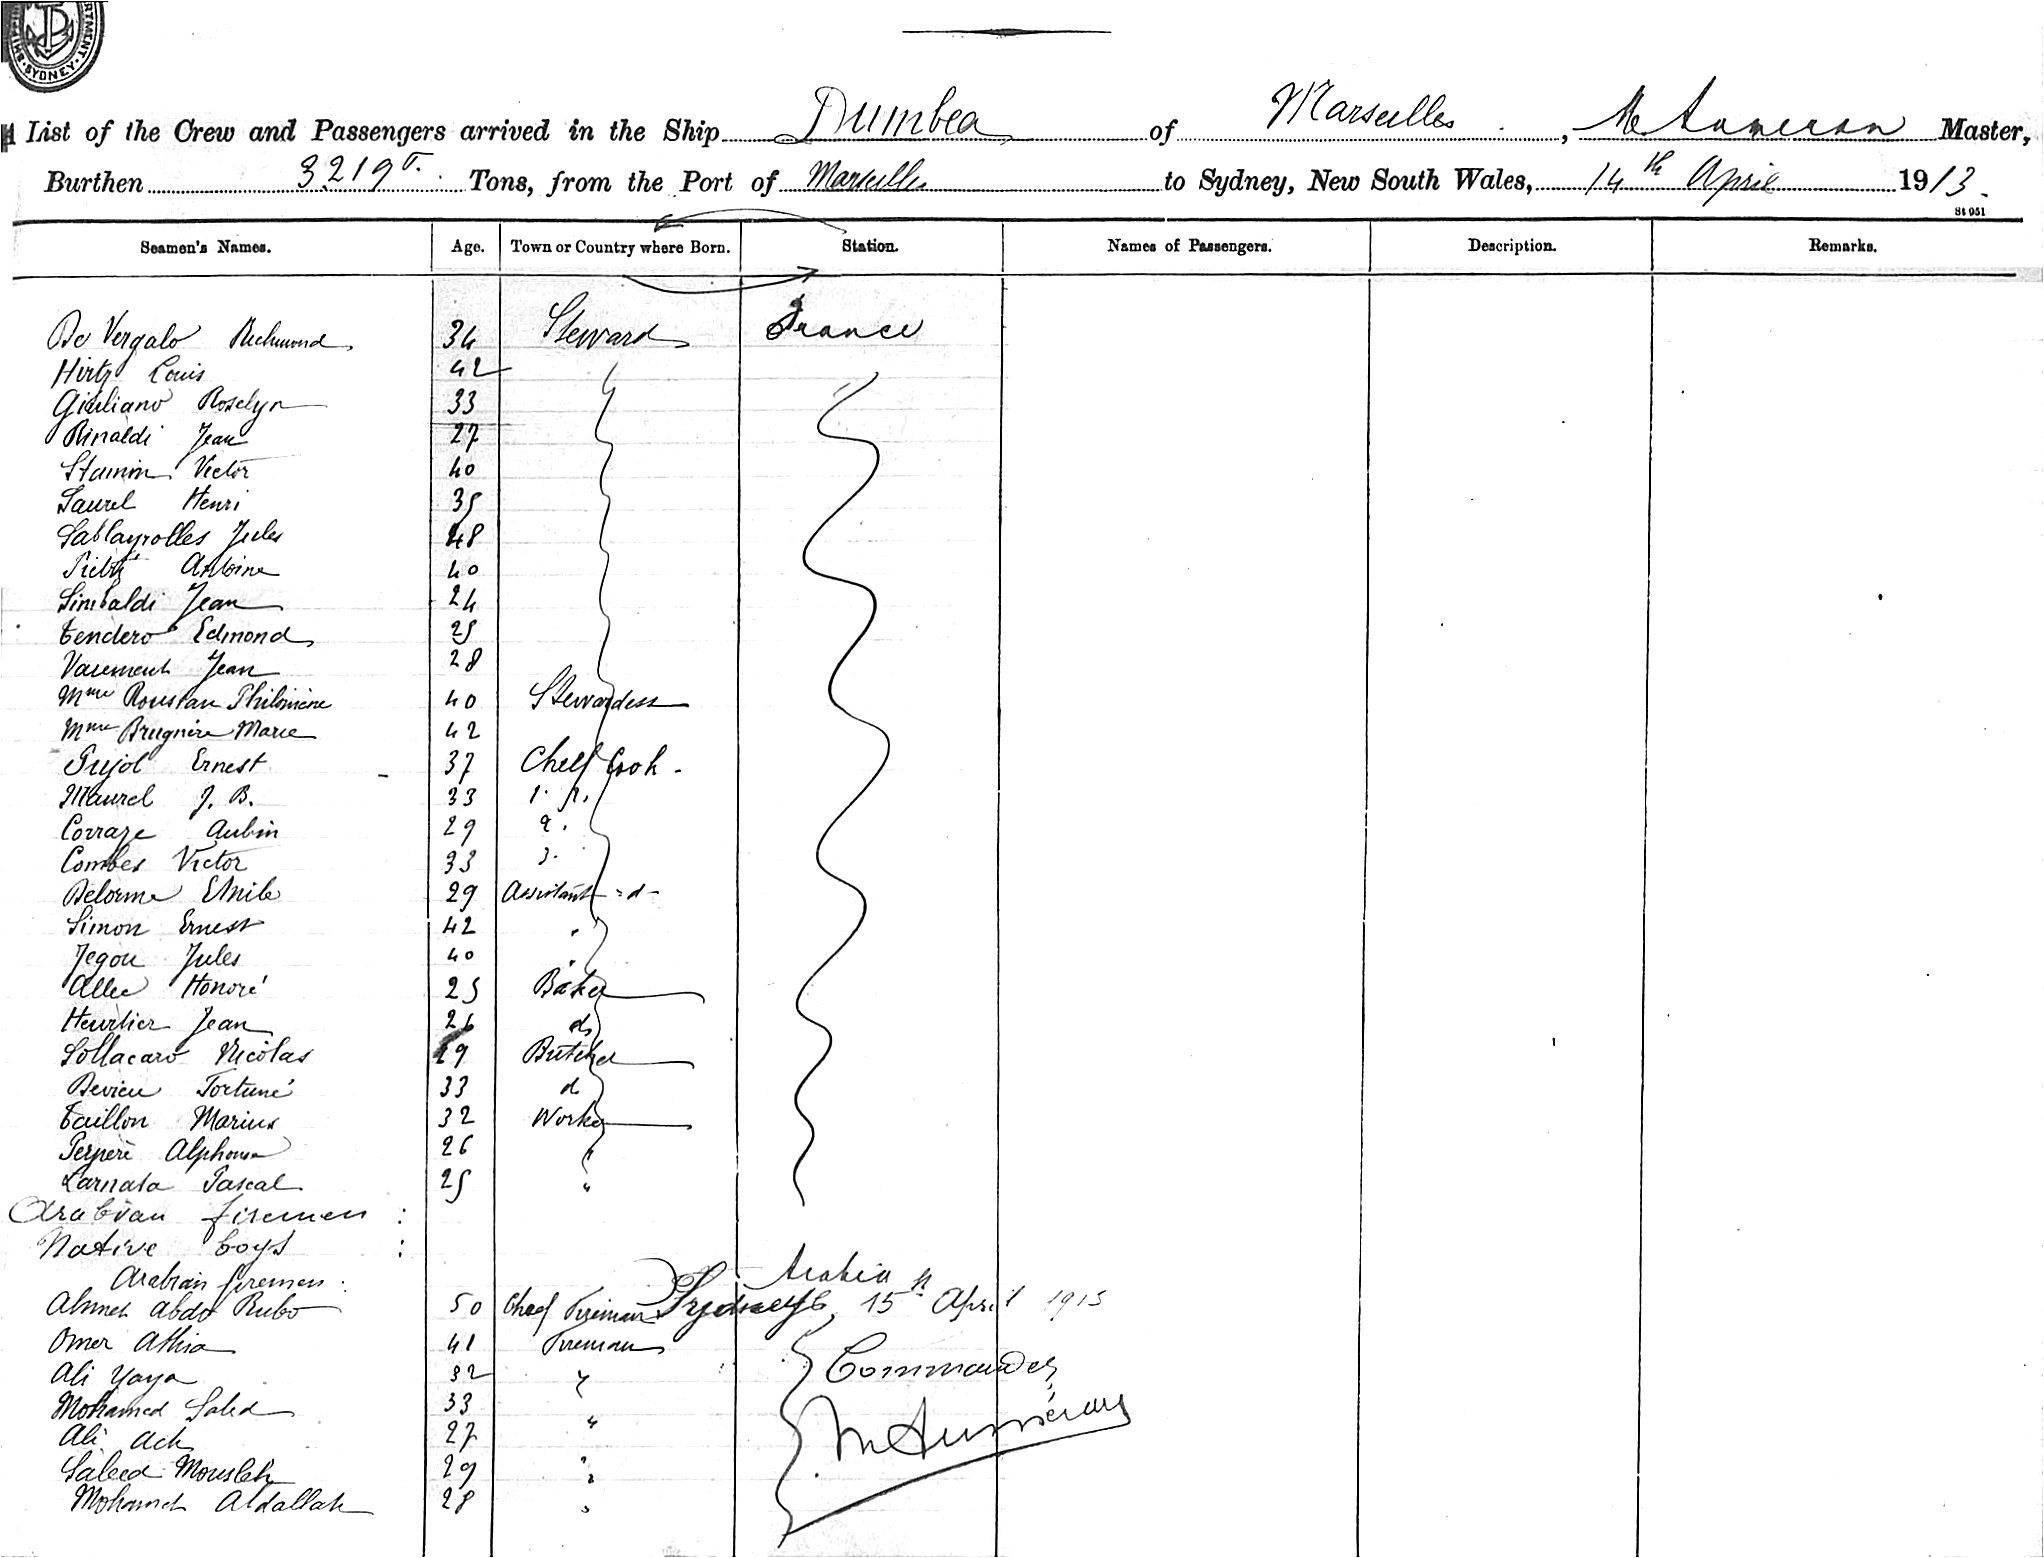 SYDNEY
A List of the Crew and Passengers arrived in the Ship Dumbea of Marseilles, Master,
Burthen 3219 T. Tons, from the Port of Marseilles to Sydney, New South Wales, 14th April 1913.
St 951
Seamen's Names. Age. Town or Country where Born. Station. Names of Passengers. Description. Remarks.
De Vergalo Richmond 34 Steward France
Hirtz Louis 42
Giuliano Roselyn 33
Rinaldi Jean 27
Stamin Victor 40
Saurel Henri 35
Sablayrolles Jules 48
Antoine 40
Sinibaldi Jean 24
Tendero Edmond 25
Vasement Jean 28
Mme Roustan Philomène 40 Stewardess
Mme Brugnière Marie 42
Pujol Ernest 37 Chef Cook -
Maurel J. B. 33 1.
Corraze Aubin 29 2.
Combes Victor 33 3.
Delorme Emile 29 Assistant - d -
Simon Ernest 42 "
Jegou Jules 40 "
Allec Honoré 25 Baker
Heurtier Jean 26 do
Sollacaro Nicolas 29 Butcher
Devieu Fortuné 33 d
Taillon Marius 32 Worker
Perperè Alphonse 26 "
Larnata Pascal 25 "
Arabian firemen :
Native boys :
Arabian firemen : Arabia
Ahmet Abdo Rubo 50 Chief Fireman Sydney, 15th April 1913
Omer Athia 41 Fireman
Ali Yaya 32 " Commander,
Mohamed Saled 33 "
Ali Ack 27
Saleed Mousleh 29 "
Mohamet Abdallah 28 "